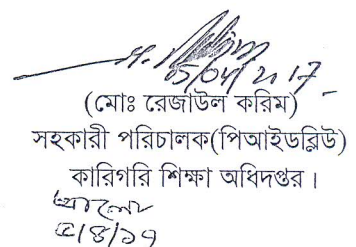 05/04/2017
(মোঃ রেজাউল করিম)
সহকারী পরিচালক(পিআইডব্লিউ)
কারিগরি শিক্ষা অধিদপ্তর।
৫/৪/১৭